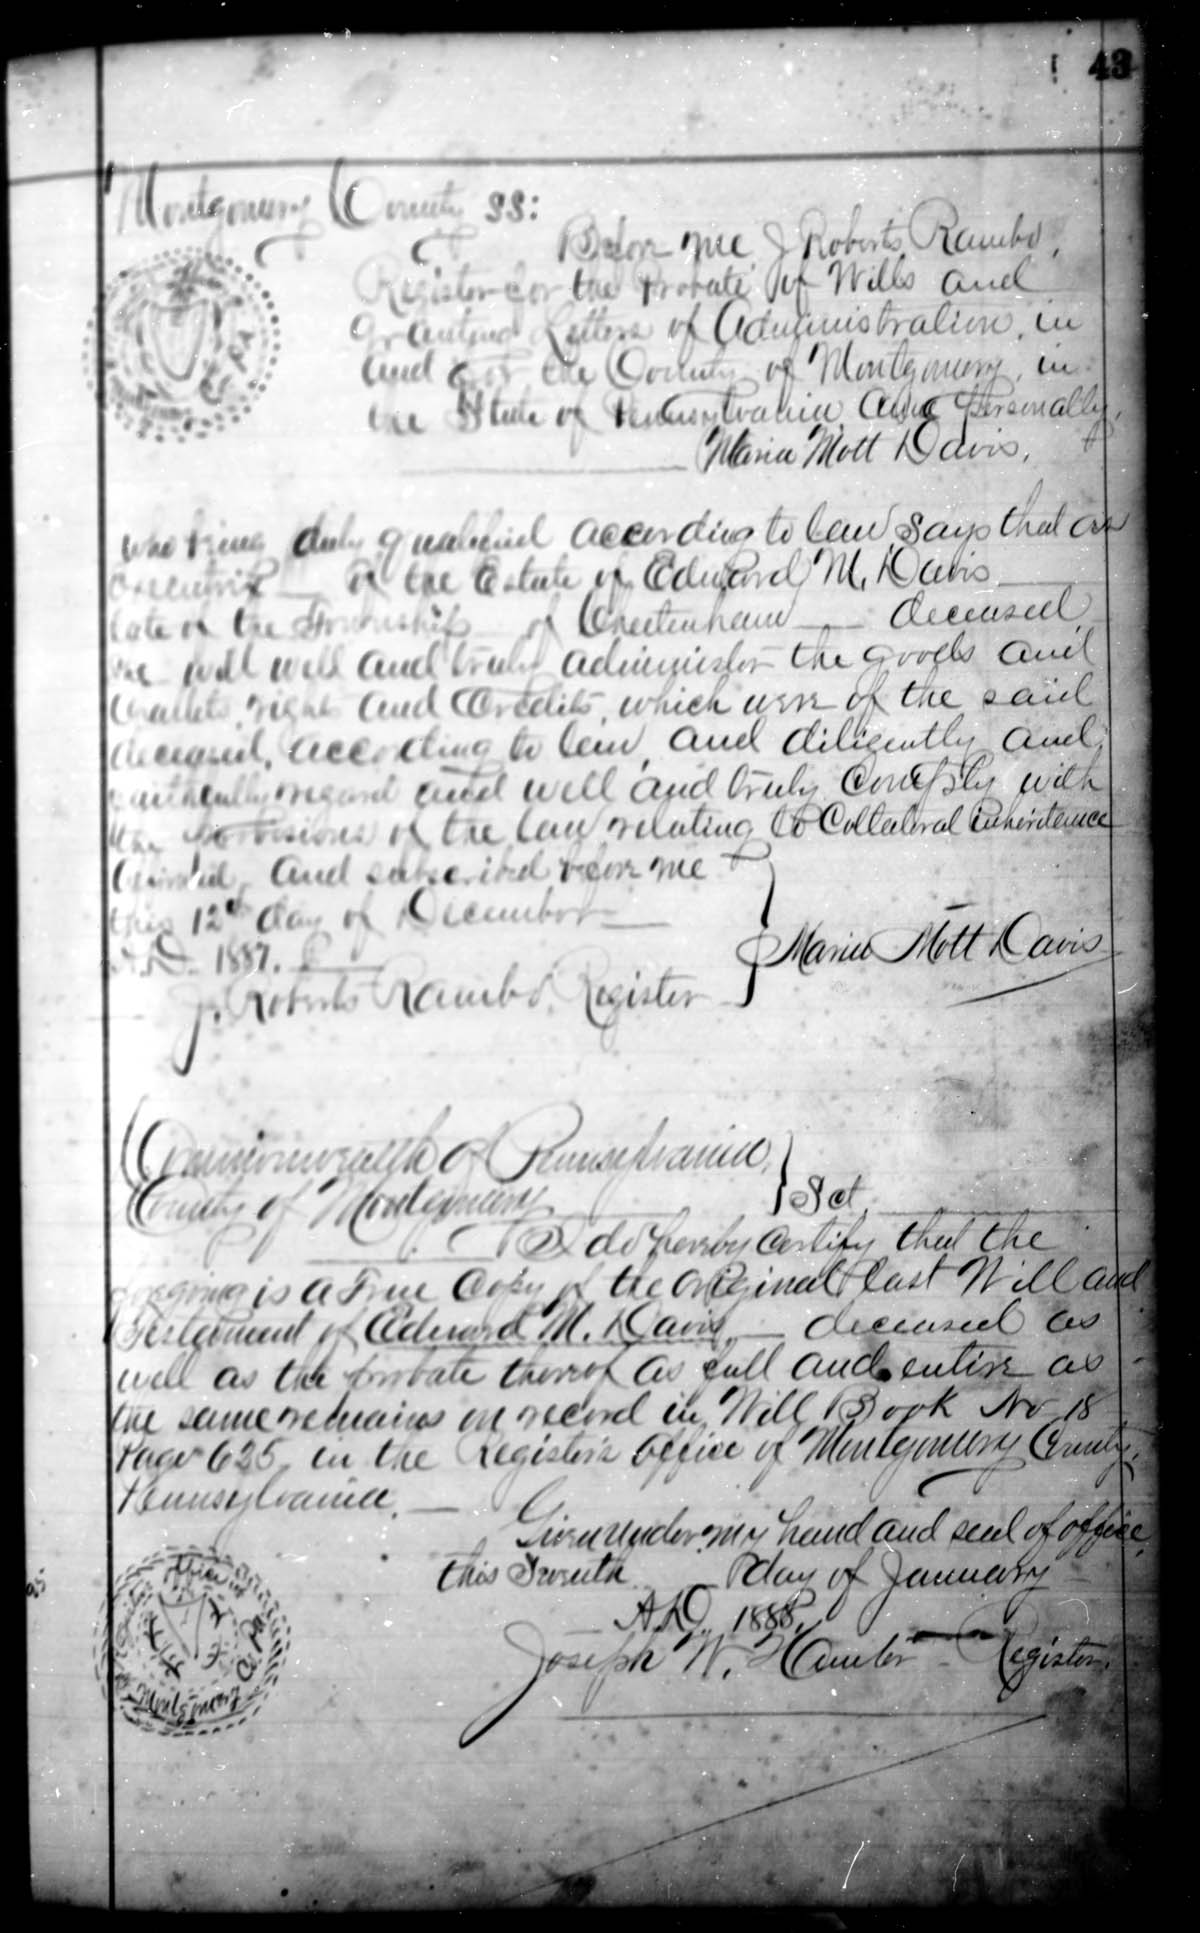 43
Montgomery County SS:
Before me J Roberts Rambo,
Register for the Probate of Wills and
granting Letters of Administration, in
and for the County of Montgomery, in
the State of Pennsylvania came personally,
Maria Mott Davis,
Co. Pa
who being duly qualified according to law says that as
executrix of the Estate of Edward M. Davis
late of the Township of Cheltenham deceased
will well and truly administer the goods and
chattels, rights and Credits, which were of the said
deceased, according to law, and diligently and
faithfully regard and well and truly comply with
the provisions of the law relating to Collateral inheritance
and subscribed before me
this 12th day of December
A.D. 1887.
Maria Mott Davis
J. Roberts Rambo, Register
Commonwealth of Pennsylvania,
County of Montgomery
Sct.
I do hereby certify that the
foregoing is a True Copy of the original last Will and
Testament of Edward M. Davis, deceased as
well as the probate thereof as full and entire as
the same remains on record in Will Book No 18
Page 625 in the Register's office of Montgomery County,
Pennsylvania.
Given under my hand and seal of office,
this day of January
A.D. 1888.
Joseph W. Hunter Register.
Office
Montgomery Co. Pa